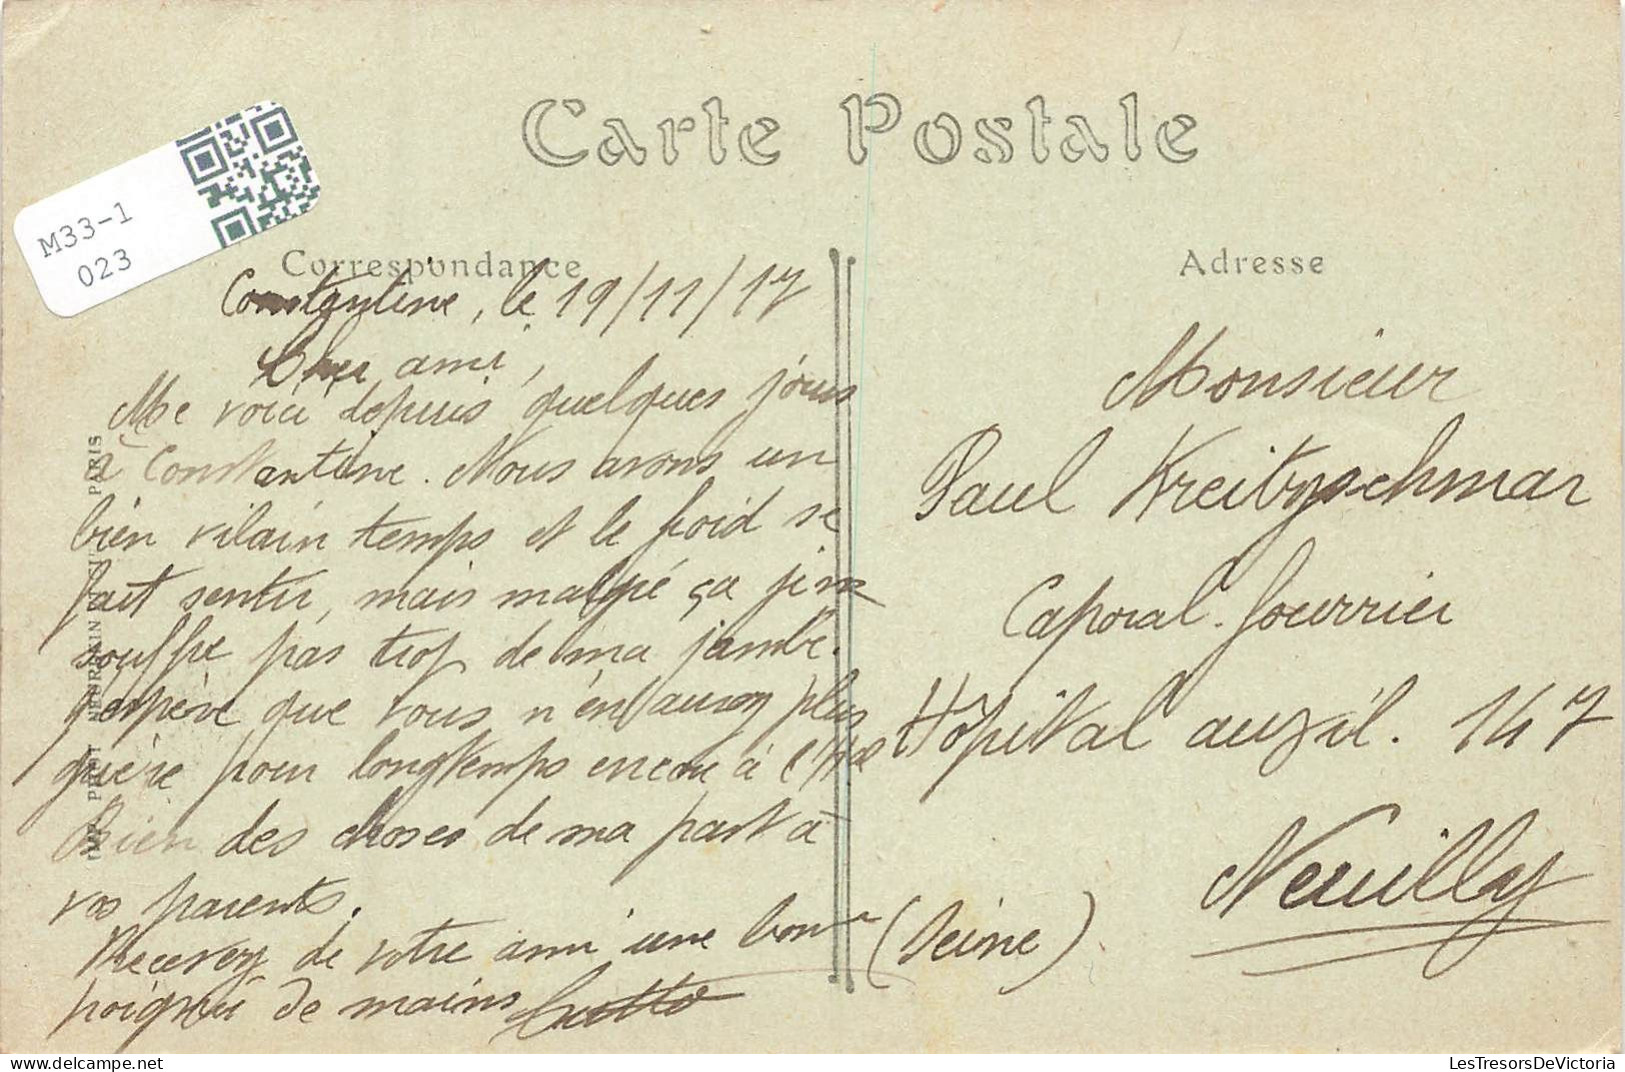 Carte Postale
M33-1
023
Correspondance
Constantine, le 19/11/17
Cher ami,
Me voici depuis quelques jours
à Constantine. Nous avons un
bien vilain temps et le froid se
fait sentir, mais malgré ça je ne
souffre pas trop de ma jambe.
J'espère que vous n'en aurez plus
guère pour longtemps encore à l'
Bien des choses de ma part à
vos parents.
Recevez de votre ami une bonne
poignée de mains
Adresse
Monsieur
Paul Kreitzschmar
Caporal-fourrier
Hôpital auxil. 147
Neuilly
(Seine)
PARIS
LesTresorsDeVictoria